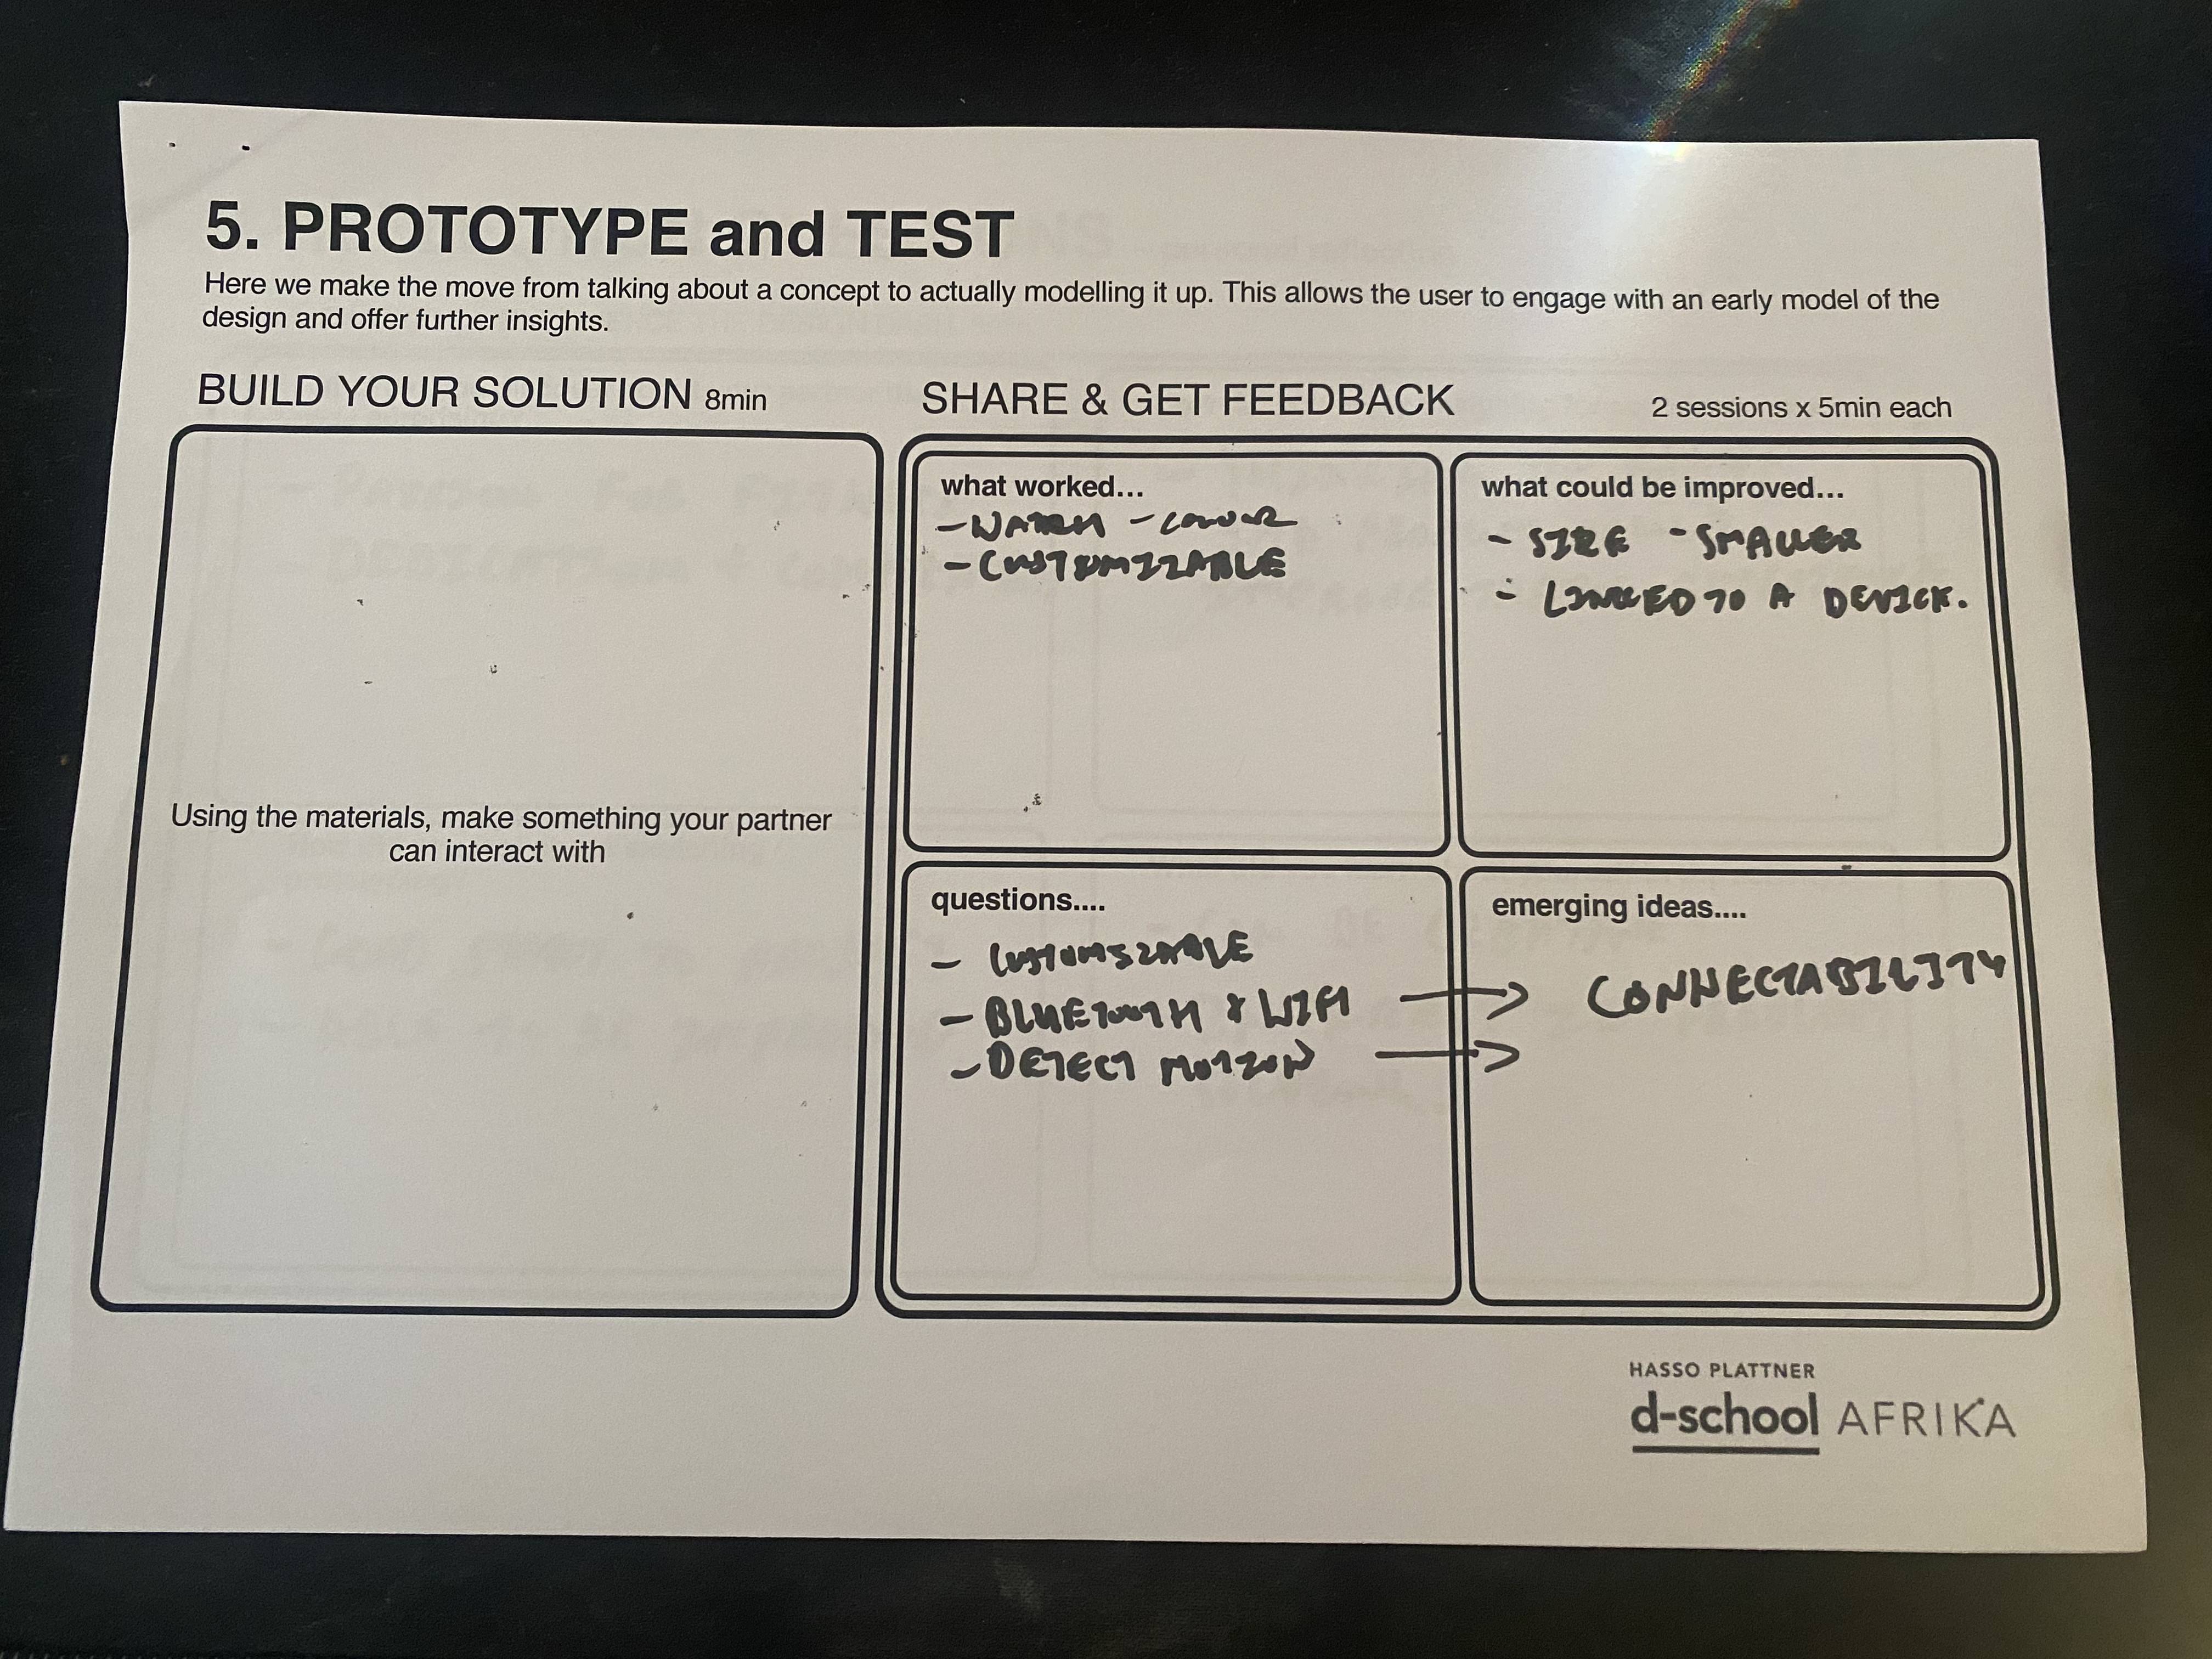 5. PROTOTYPE and TEST
Here we make the move from talking about a concept to actually modelling it up. This allows the user to engage with an early model of the
design and offer further insights.
BUILD YOUR SOLUTION 8min
Using the materials, make something your partner
can interact with
SHARE & GET FEEDBACK 2 sessions x 5min each
what worked...
- WATCH - COLOUR
- CUSTOMIZABLE
what could be improved...
- SIZE - SMALLER
- LINKED TO A DEVICE.
questions....
- CUSTOMIZABLE
- BLUETOOTH & WIFI →
- DETECT MOTION →
emerging ideas....
CONNECTABILITY
HASSO PLATTNER
d-school AFRIKA